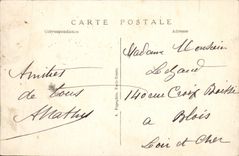 CARTE POSTALE
Correspondance
Adresse
Amitiés
de tous
AMathy
Madame Monsieur
140 rue Croix Boissée
a Blois
Loir et Cher